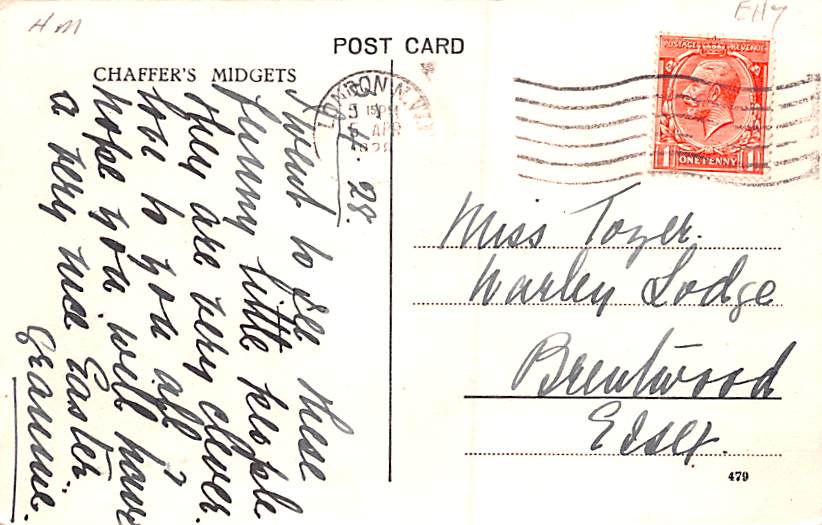 HM
EH7
POST CARD
CHAFFER'S MIDGETS
LONDON N.W.1
5 APR
1928
POSTAGE REVENUE
ONE PENNY
5. 4. 28.
I went to see these
funny little people
they are very clever.
love to you all
hope you will have
a very nice Easter.
Grannie.
Miss Tozer.
Warley Lodge
Brentwood
Essex.
479